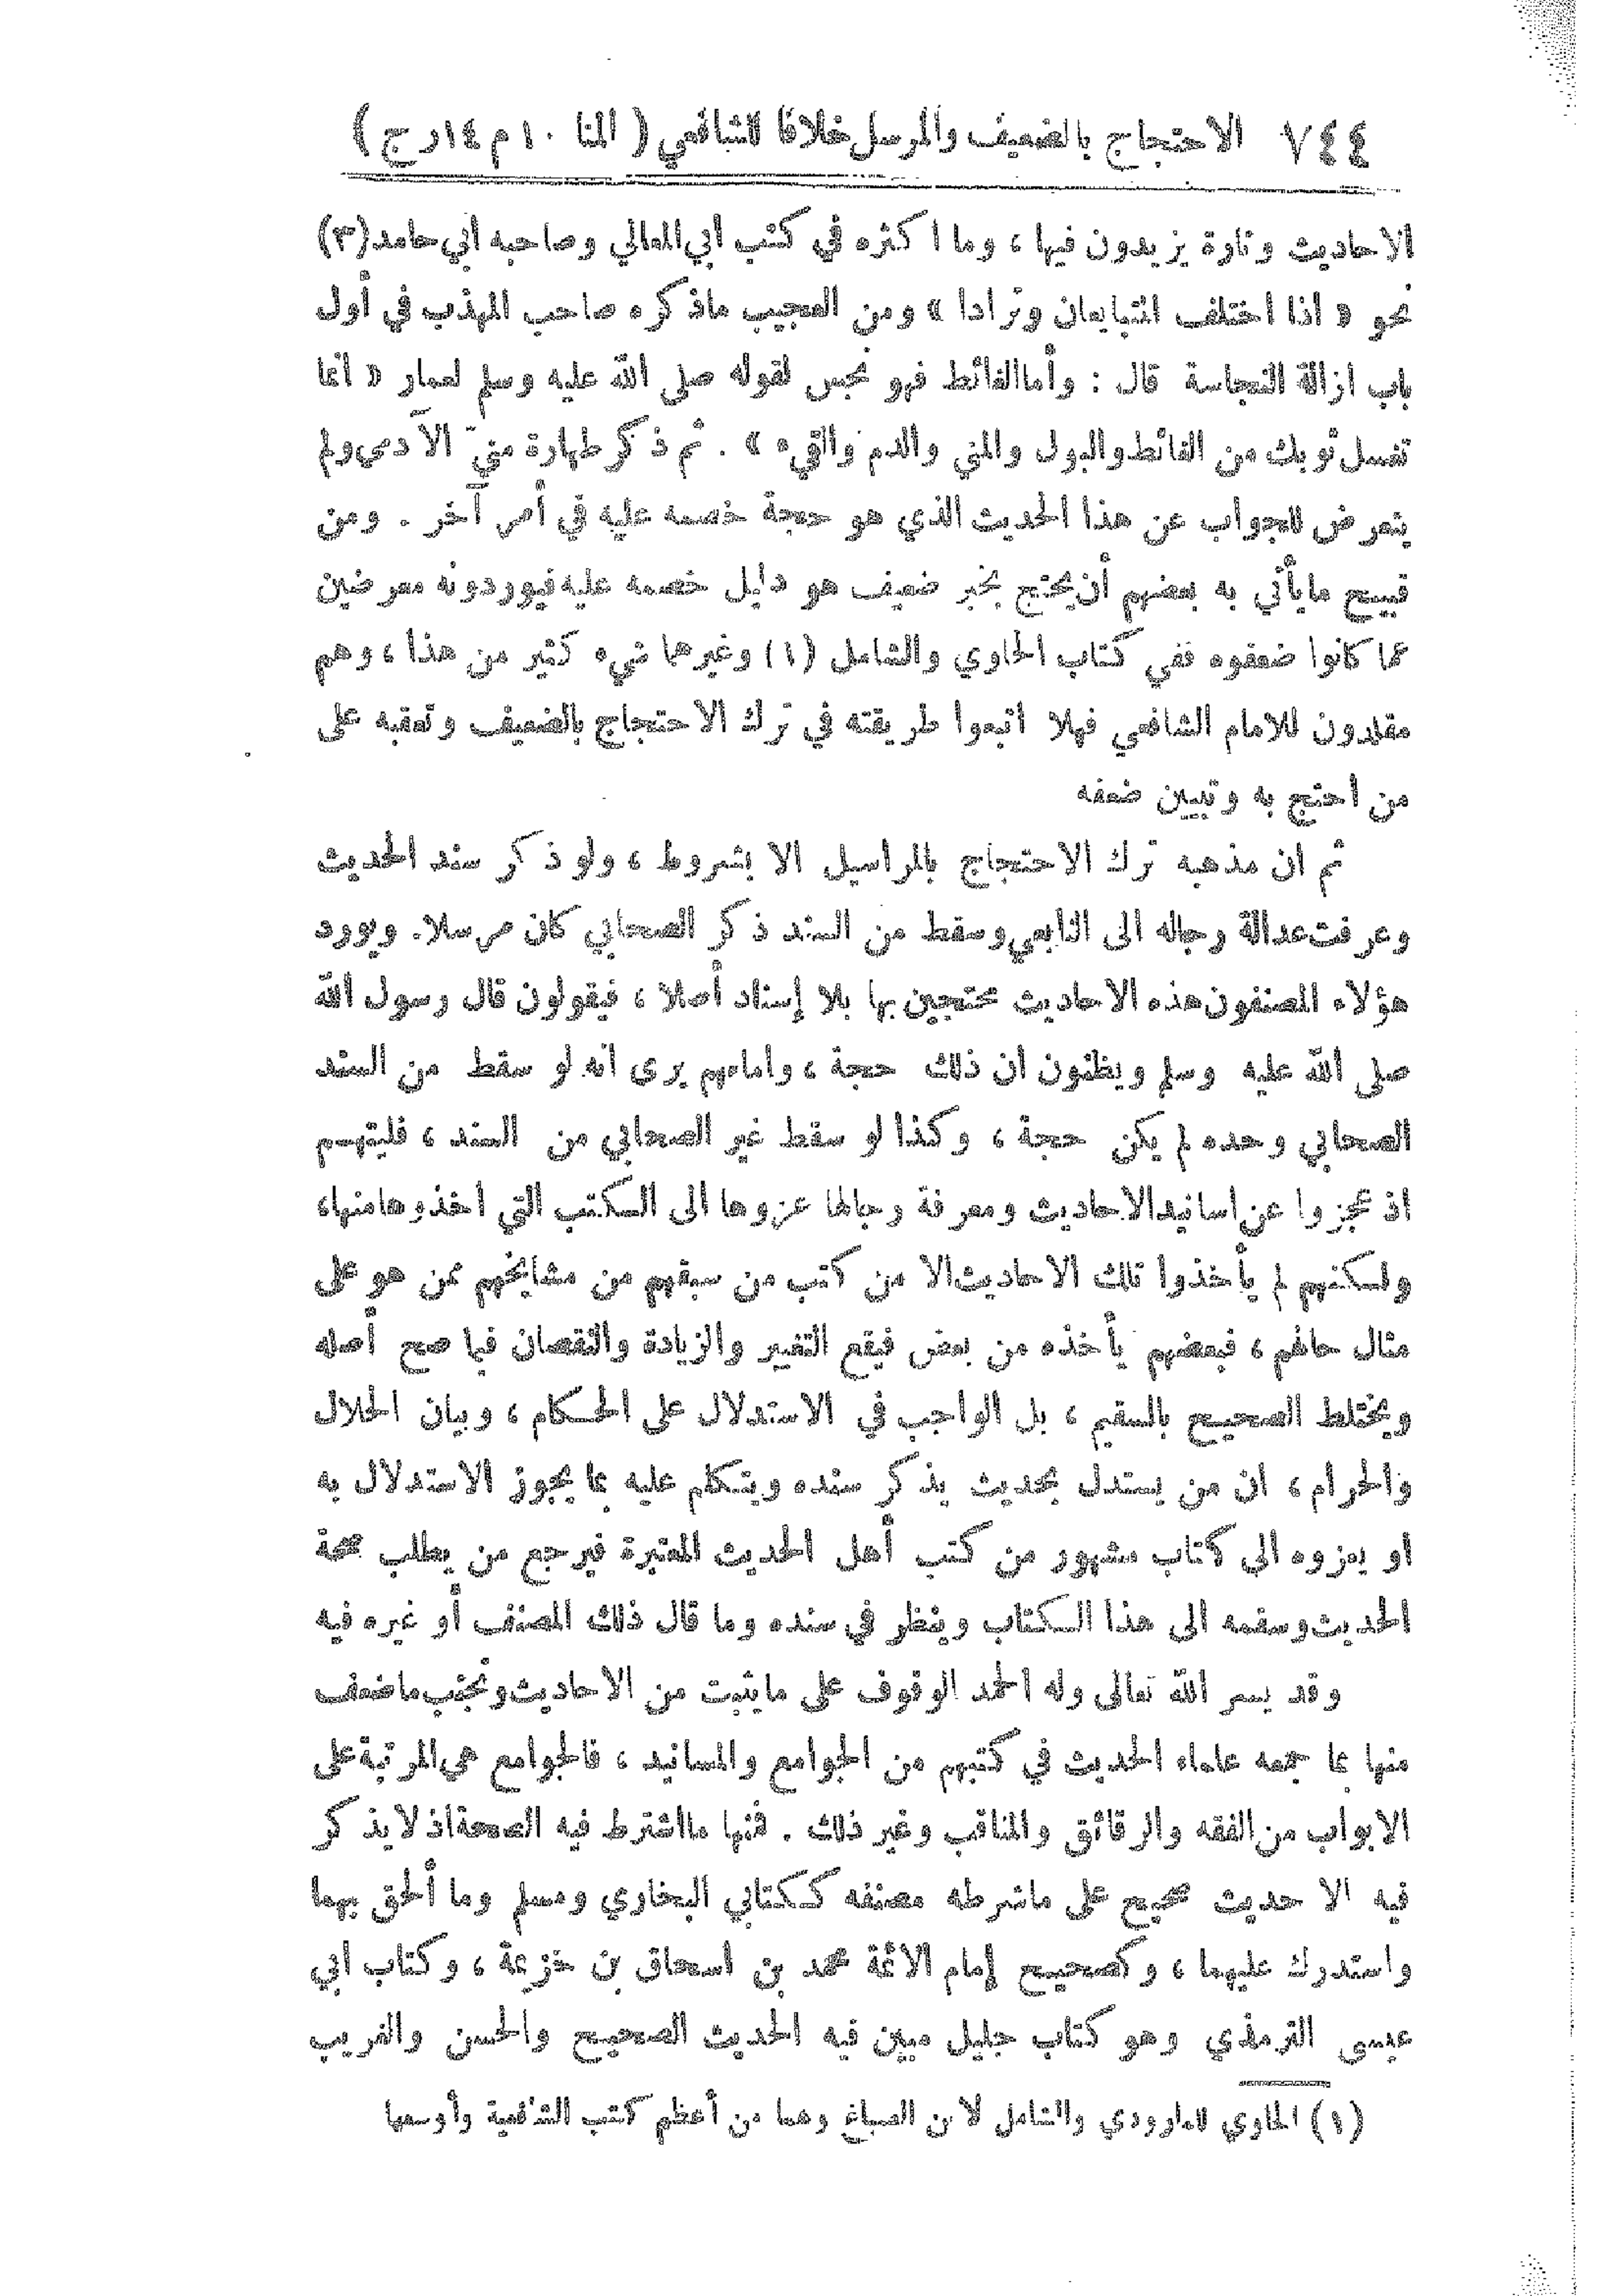 ٧٤٤ الاحتجاج بالضعيف والمرسل خلافا للشافعي ( المنار ج ١٠ م ١٤ )
الاحاديث وتارة يزيدون فيها ، وما اكثره في كتب أبي المعالي وصاحبه أبي حامد (٣)
نحو « اذا اختلف المتبايعان وترادا » ومن العجيب ماذكره صاحب المهذب في أول
باب ازالة النجاسة قال : وأما الغائط فهو نجس لقوله صلى الله عليه وسلم لعمار « انما
تغسل ثوبك من الغائط والبول والمني والدم والقيء » . ثم ذكر طهارة منيّ الآدمى ولم
يتعرض للجواب عن هذا الحديث الذي هو حجة خصمه عليه في أمر آخر . ومن
قبيح مايأتي به بعضهم أن يحتج بخبر ضعيف هو دليل خصمه عليه فيوردونه معرضين
عما كانوا ضعفوه ففي كتاب الحاوي والشامل (١) وغيرهما شيء كثير من هذا ، وهم
مقلدون للامام الشافعي فهلا اتبعوا طريقته في ترك الاحتجاج بالضعيف وتعقبه على
من احتج به وتبيين ضعفه
ثم ان مذهبه ترك الاحتجاج بالمراسيل الا بشروط ، ولو ذكر سند الحديث
وعرفت عدالة رجاله الى التابعي وسقط من السند ذكر الصحابي كان مرسلا . ويورد
هؤلاء المصنفون هذه الاحاديث محتجين بها بلا إسناد أصلا ، فيقولون قال رسول الله
صلى الله عليه وسلم ويظنون ان ذلك حجة ، وامامهم يرى انه لو سقط من السند
الصحابي وحده لم يكن حجة ، وكذا لو سقط غير الصحابي من السند ، فليتهم
اذ عجزوا عن اسانيد الاحاديث ومعرفة رجالها عزوها الى الكتب التي اخذوها منها ،
ولكنهم لم يأخذوا تلك الاحاديث الا من كتب من سبقهم من مشايخهم ممن هو على
مثال حالهم ، فبعضهم يأخذه من بعض فيقع التغيير والزيادة والنقصان فيما صح أصله
ويختلط الصحيح بالسقيم ، بل الواجب في الاستدلال على الحكام ، وبيان الحلال
والحرام ، ان من يستدل بحديث يذكر سنده ويتكلم عليه بما يجوز الاستدلال به
او يعزوه الى كتاب مشهور من كتب أهل الحديث المعتبرة فيرجع من يطلب صحة
الحديث وسقمه الى هذا الكتاب وينظر في سنده وما قال ذلك المصنف أو غيره فيه
وقد يسر الله تعالى وله الحمد الوقوف على مايثبت من الاحاديث وتجنب ماضعف
منها بما جمعه علماء الحديث في كتبهم من الجوامع والمسانيد ، فالجوامع هي المرتبة على
الابواب من الفقه والرقائق والمناقب وغير ذلك . فمنها مااشترط فيه الصحة اذ لا يذكر
فيه الا حديث صحيح على ماشرطه مصنفه ككتابي البخاري ومسلم وما ألحق بهما
واستدرك عليهما ، وكصحيح إمام الائمة محمد بن اسحاق بن خزيمة ، وكتاب ابي
عيسى الترمذي وهو كتاب جليل مبين فيه الحديث الصحيح والحسن والغريب
(١) الحاوي للماوردي والشامل لابن الصباغ وهما من أعظم كتب الشافعية وأوسعها